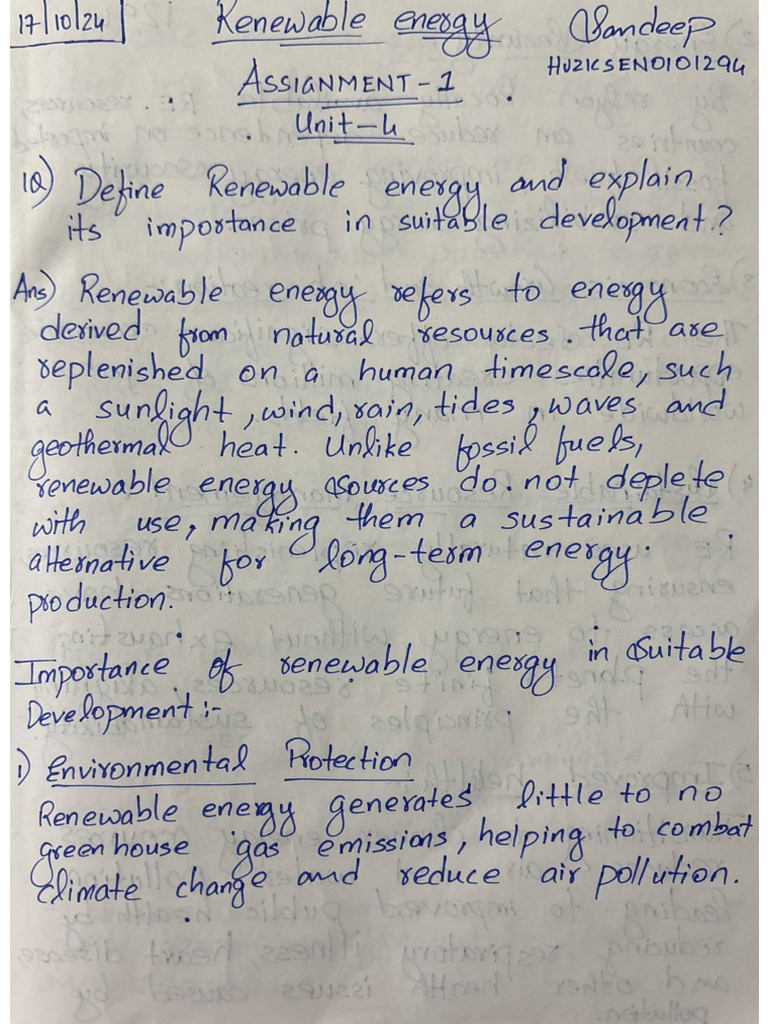 17/10/24
Renewable energy
Sandeep
HU21CSEN0101294
ASSIGNMENT-1
Unit-4
1Q) Define Renewable energy and explain
its importance in suitable development?
Ans) Renewable energy refers to energy
derived from natural resources. that are
replenished on a human timescale, such
a sunlight, wind, rain, tides, waves and
geothermal heat. Unlike fossil fuels,
renewable energy sources do not deplete
with use, making them a sustainable
alternative for long-term energy.
production.
Importance of renewable energy in suitable
Development:-
1) Environmental Protection
Renewable energy generates little to no
greenhouse gas emissions, helping to combat
climate change and reduce air pollution.